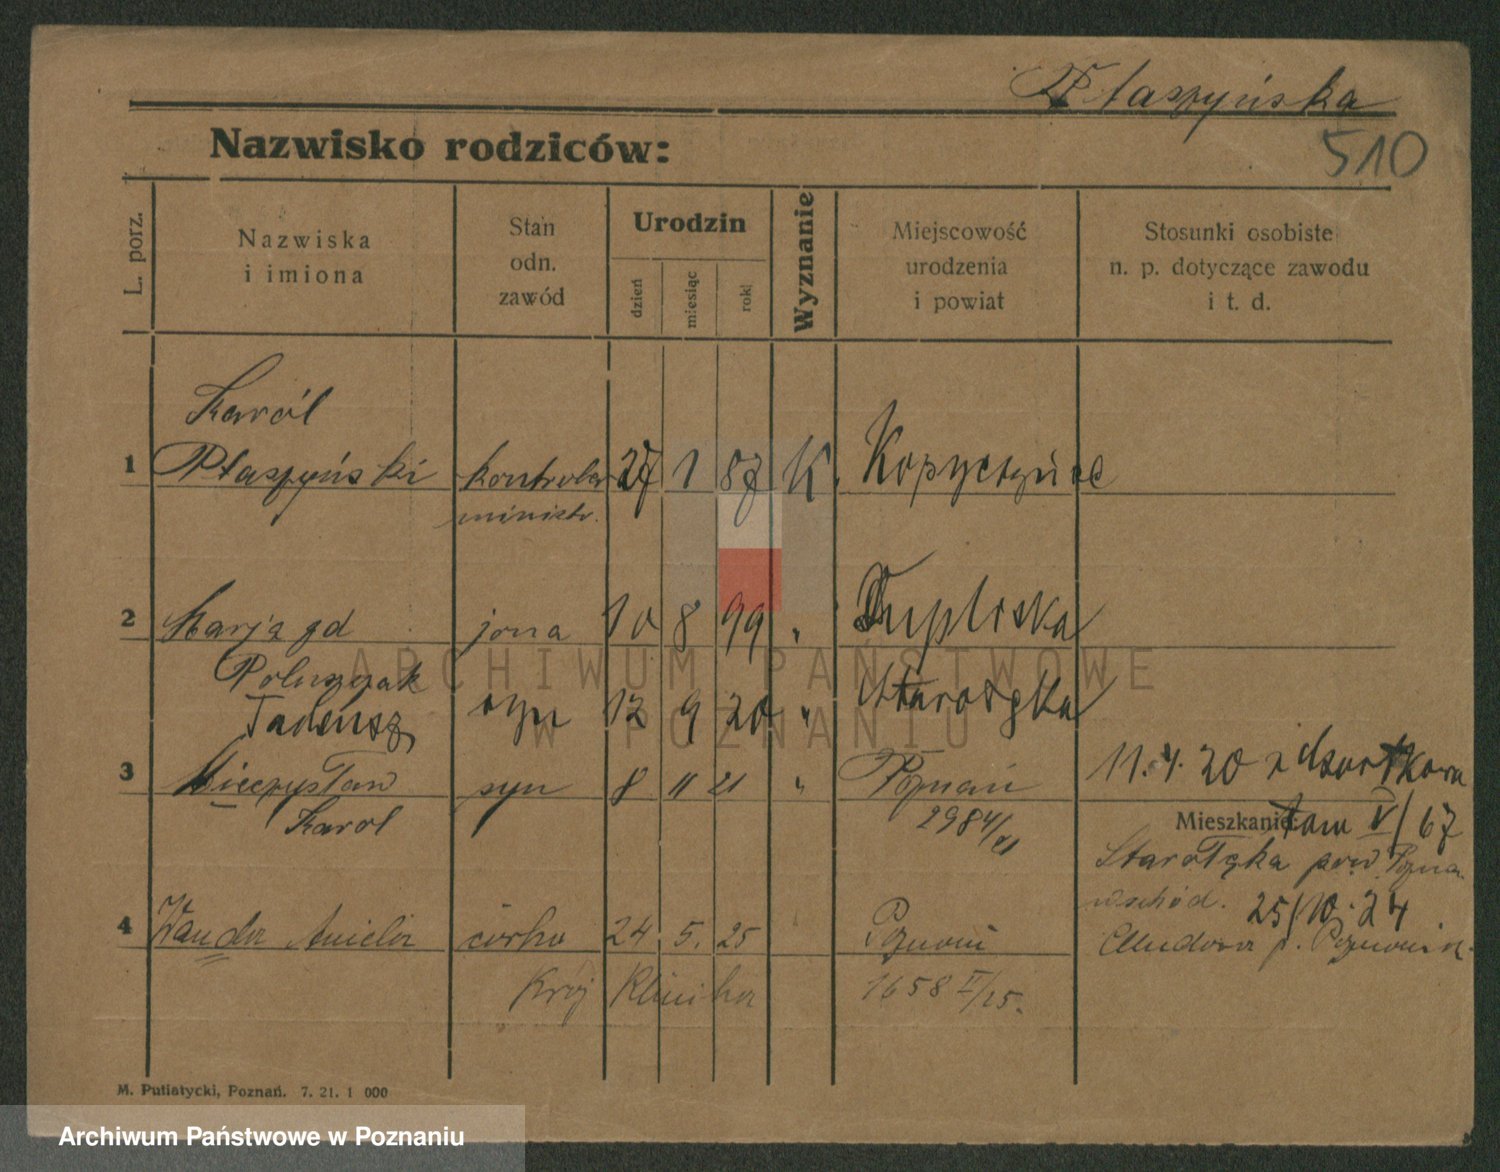 Ptaszyńska
510
Nazwisko rodziców:
L. porz.
Nazwiska
i imiona
Stan
odn.
zawód
Urodzin
dzień
miesiąc
rok
Wyznanie
Miejscowość
urodzenia
i powiat
Stosunki osobiste
n. p. dotyczące zawodu
i t. d.
Karól
1 Ptaszyński kontroler 27 1 87 K. Kopyczyńce
ministr.
2 Marja zd żona 10 8 99 " Dupliska
Poluszczak
Tadeusz syn 12 9 20 " Starołęka
3 Mieczysław syn 8 11 21 " Poznań
Karol
2984/VI
11.4.20 z Czortkowa
Mieszkanie: tam V/67
Starołęka pow. Poznań
wschód. 25/10.24
4 Wanda Aniela córka 24 5. 25 Poznań
Kraj Klinika 1658 II/25.
M. Putiatycki, Poznań. 7. 21. 1 000
ARCHIWUM PAŃSTWOWE
W POZNANIU
Archiwum Państwowe w Poznaniu